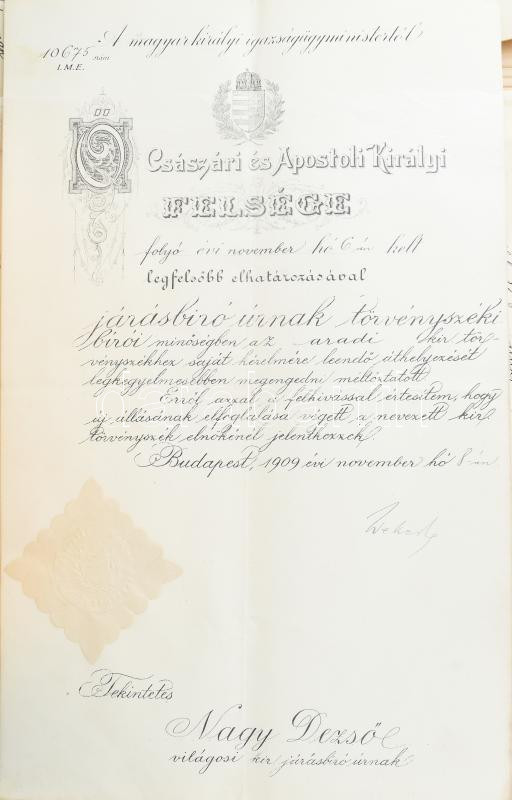 A magyar királyi igazságügyministertől
10675 szám
I.M.E.
Ő Császári és Apostoli Királyi
FELSÉGE
folyó évi november hó 6-án kelt
legfelsőbb elhatározásával
járásbiró úrnak törvényszéki
birói minőségben az aradi kir. tör-
vényszékhez saját kérelmére leendő áthelyezését
legkegyelmesebben megengedni méltóztatott.
Erről azzal a felhivással értesitem, hogy
új állásának elfoglalása végett a nevezett kir.
törvényszék elnökénél jelentkezzék.
Budapest, 1909 évi november hó 8-án
Wekerle
Tekintetes
Nagy Dezső
világosi kir járásbiró úrnak